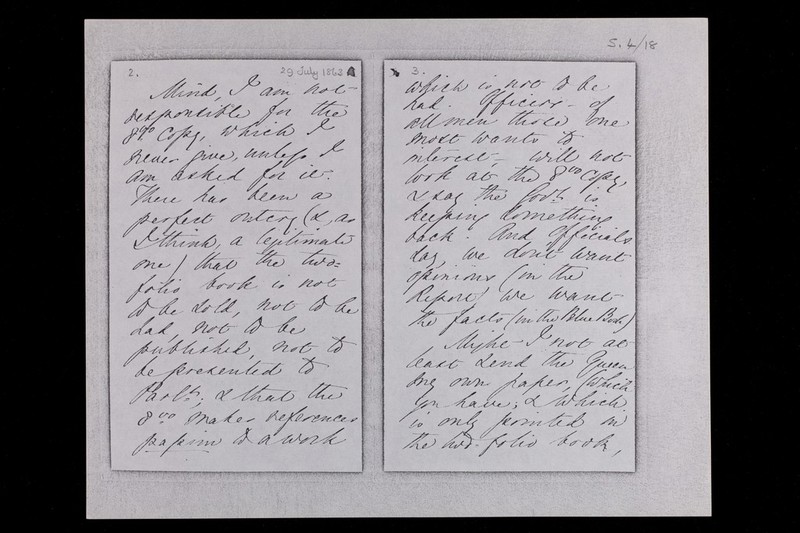 S. 4/18
2.
29 July 1863
Mind, I am not
responsible for the
8vo Copy, which I
never give, unless I
am asked for it.
There has been a
perfect outcry (&, as
I think, a legitimate
one) that the two-
folio book is not
to be sold, not to be
had, not to be
published, not to
be presented to
Parlt; & that the
8vo makes references
passim to a work
3.
which is not to be
had. Officers - of
all men those one
most wants to
interest - will not
look at the 8vo Copy,
& say the Govt is
keeping something
back. And Officials
say, we don't want
opinions (in the
Report) we want
the facts (in the Blue Book)
Might I not at
least send the Queen
my own paper, (which
you have; & which
is only printed in
the two-folio book,